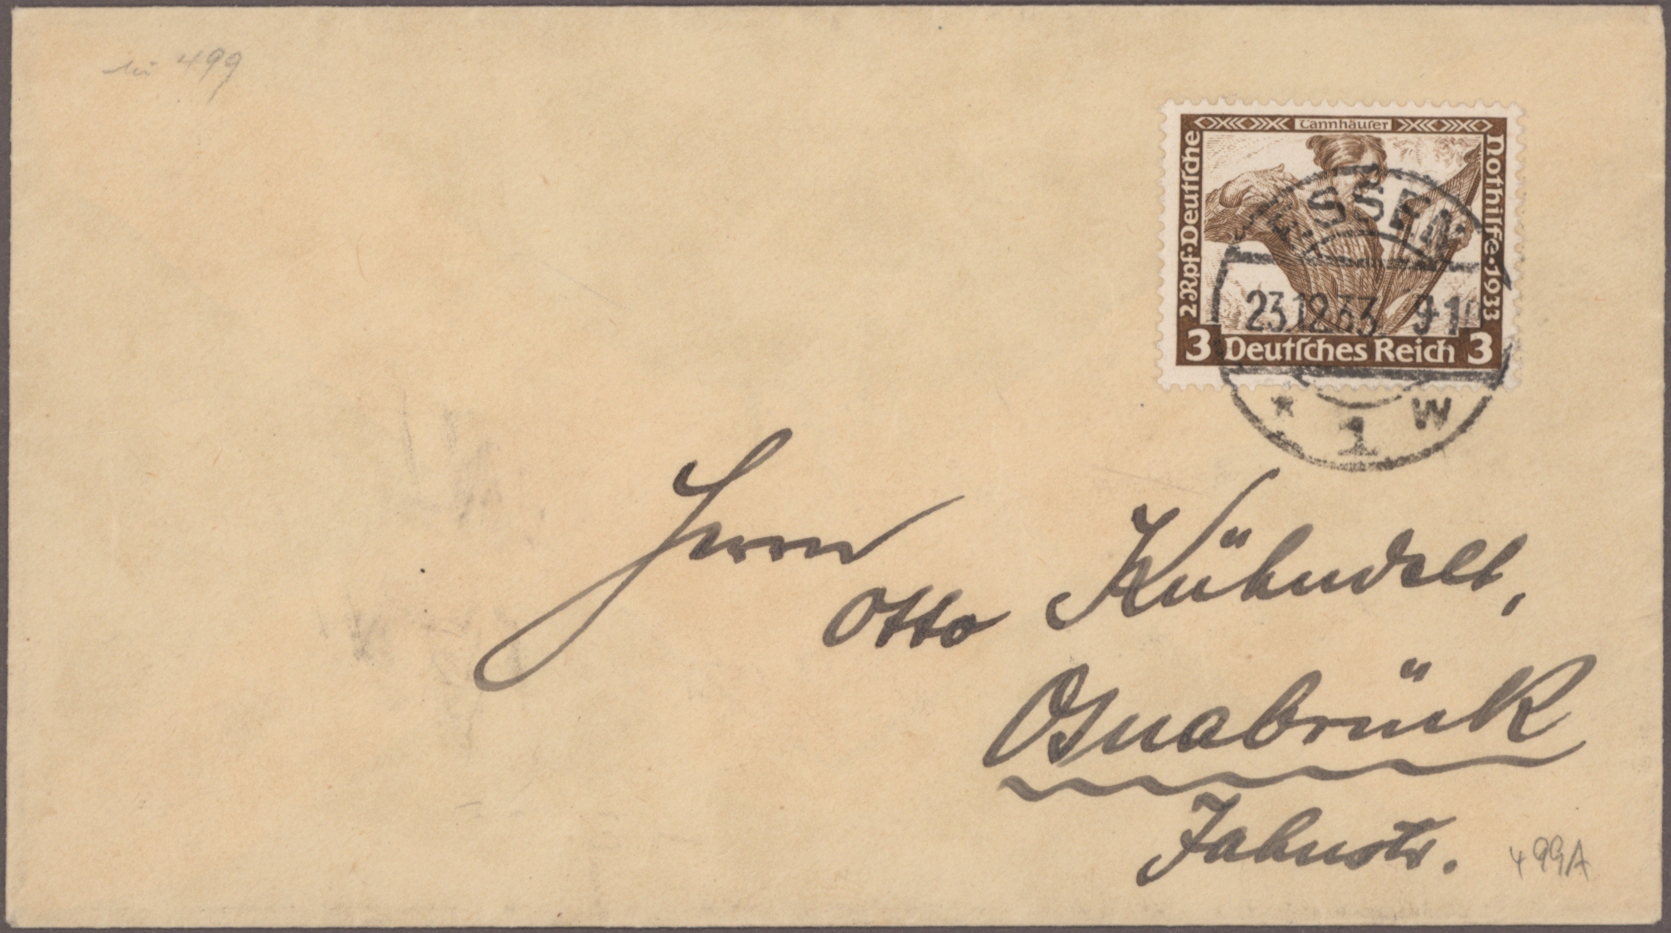 Mi 499
Tannhäuſer
2 Rpf·Deutſche
Nothilfe·1933
3 Deutſches Reich 3
ESSEN
23.12.33. 9-10
* 1 w
Herrn
Otto Kühndelt,
Osnabrück
Jahnstr.
499A